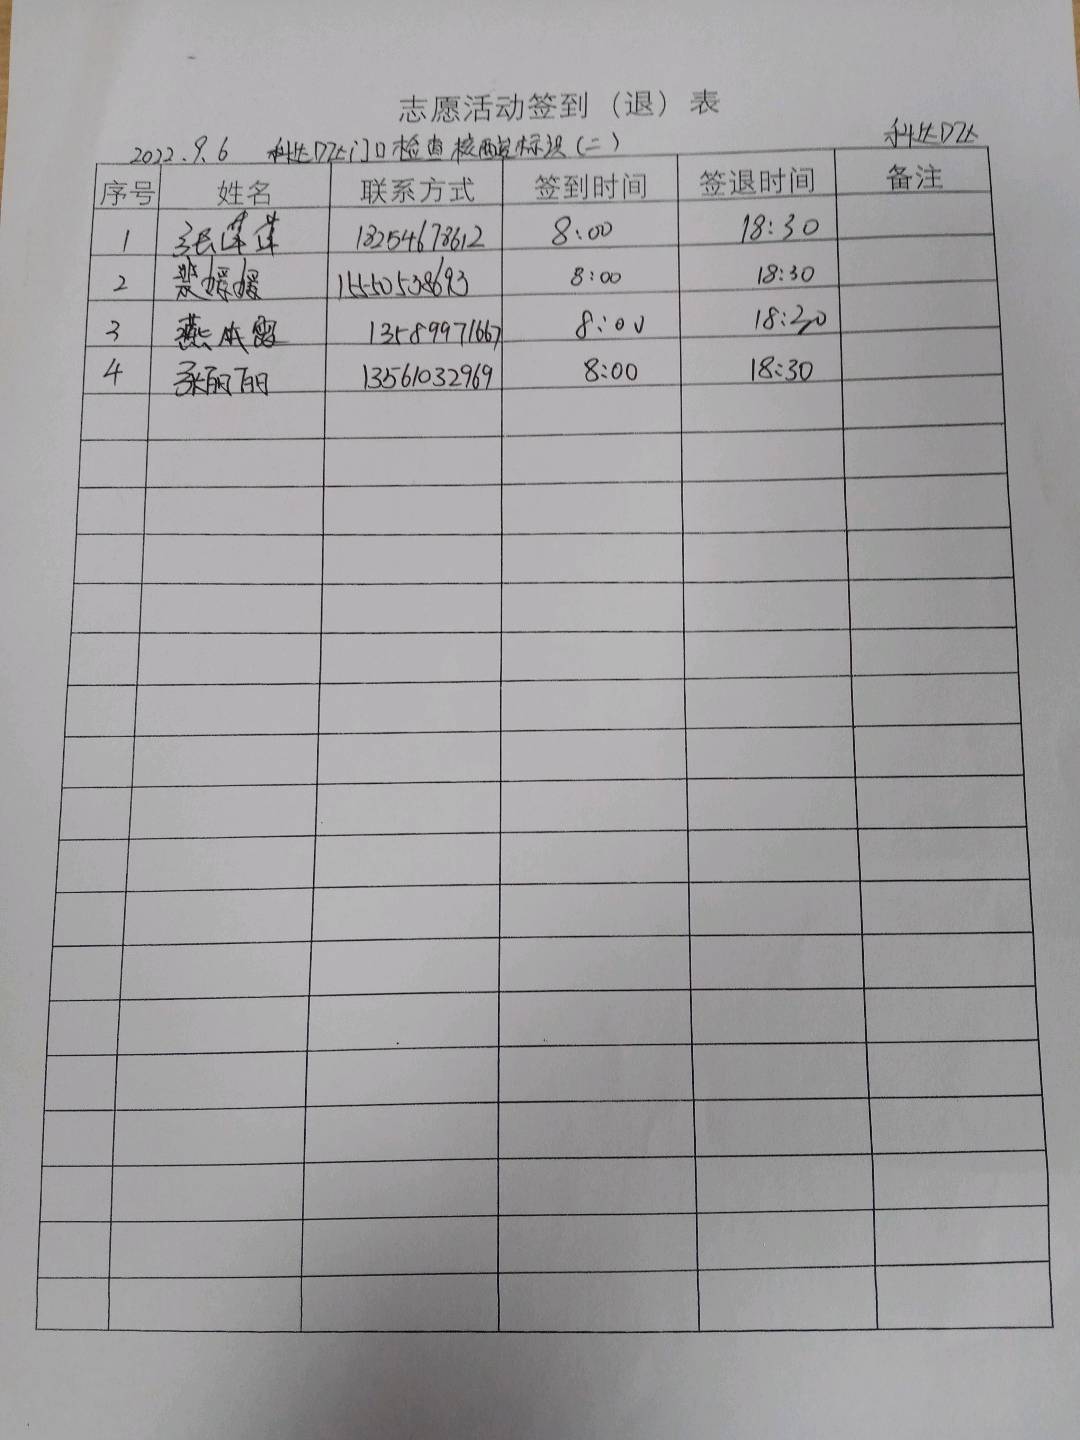 志愿活动签到（退）表
科达DZ达
2022.9.6 科达DZ达门口检查核酸标识(二)
序号 姓名 联系方式 签到时间 签退时间 备注
1 张萍萍 18254678612 8:00 18:30
2 媛媛 15550538693 8:00 18:30
3 燕 霞 13589971667 8:00 18:30
4 张丽丽 13561032969 8:00 18:30